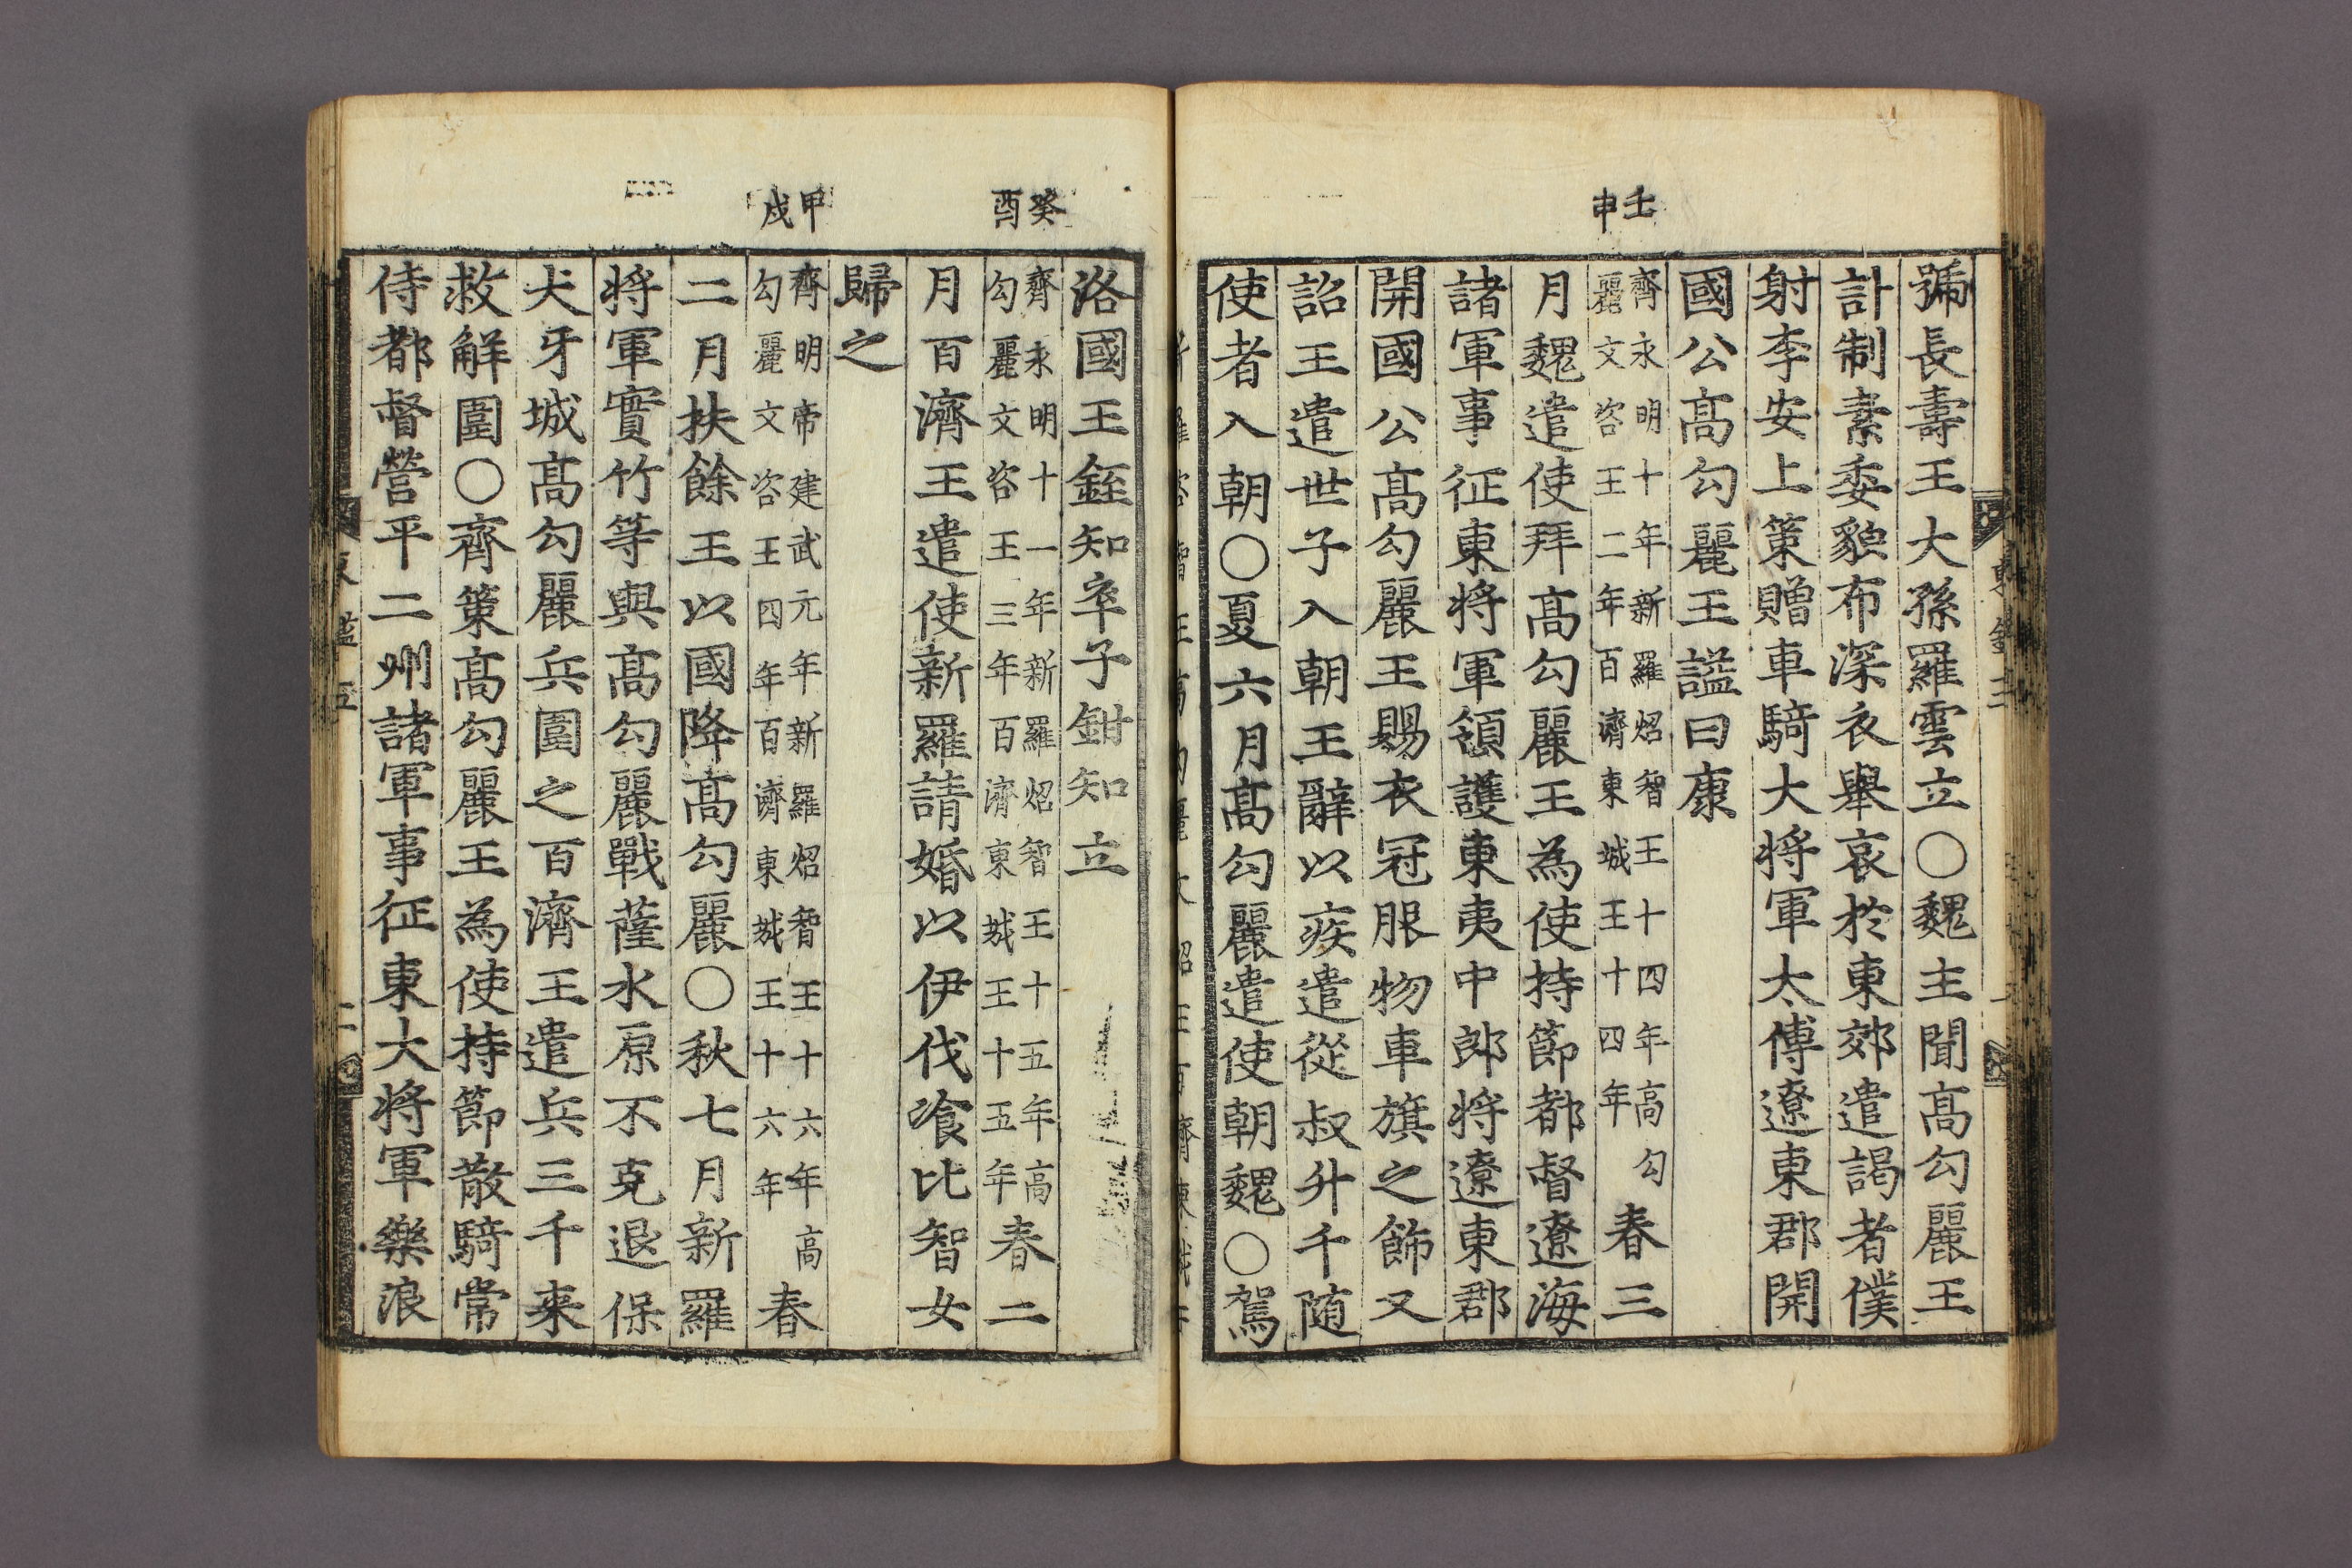 壬申
號長壽王大孫羅雲立〇魏主聞高勾麗王
計制素委貌布深衣舉哀於東郊遣謁者僕
射李安上策贈車騎大將軍太傅遼東郡開
國公高勾麗王謚曰康
齊永明十年新羅炤智王十四年高勾
麗文咨王二年百濟東城王十四年
春三
月魏遣使拜高勾麗王為使持節都督遼海
諸軍事征東將軍領護東夷中郎將遼東郡
開國公高勾麗王賜衣冠服物車旗之飾又
詔王遣世子入朝王辭以疾遣從叔升千随
使者入朝〇夏六月高勾麗遣使朝魏〇駕
癸酉
甲戌
洛國王銍知卒子鉗知立
齊永明十一年新羅炤智王十五年高
勾麗文咨王三年百濟東城王十五年
春二
月百濟王遣使新羅請婚以伊伐飡比智女
歸之
齊明帝建武元年新羅炤智王十六年高
勾麗文咨王四年百濟東城王十六年
春
二月扶餘王以國降高勾麗〇秋七月新羅
將軍實竹等與高勾麗戰薩水原不克退保
犬牙城高勾麗兵圍之百濟王遣兵三千來
救解圍〇齊策高勾麗王為使持節散騎常
侍都督營平二州諸軍事征東大將軍樂浪